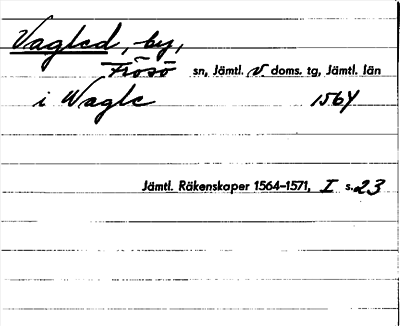 Vagled, by,
Frösö sn, Jämtl. V doms. tg, Jämtl. län
i Wagle 1564
Jämtl. Räkenskaper 1564–1571, I s. 23